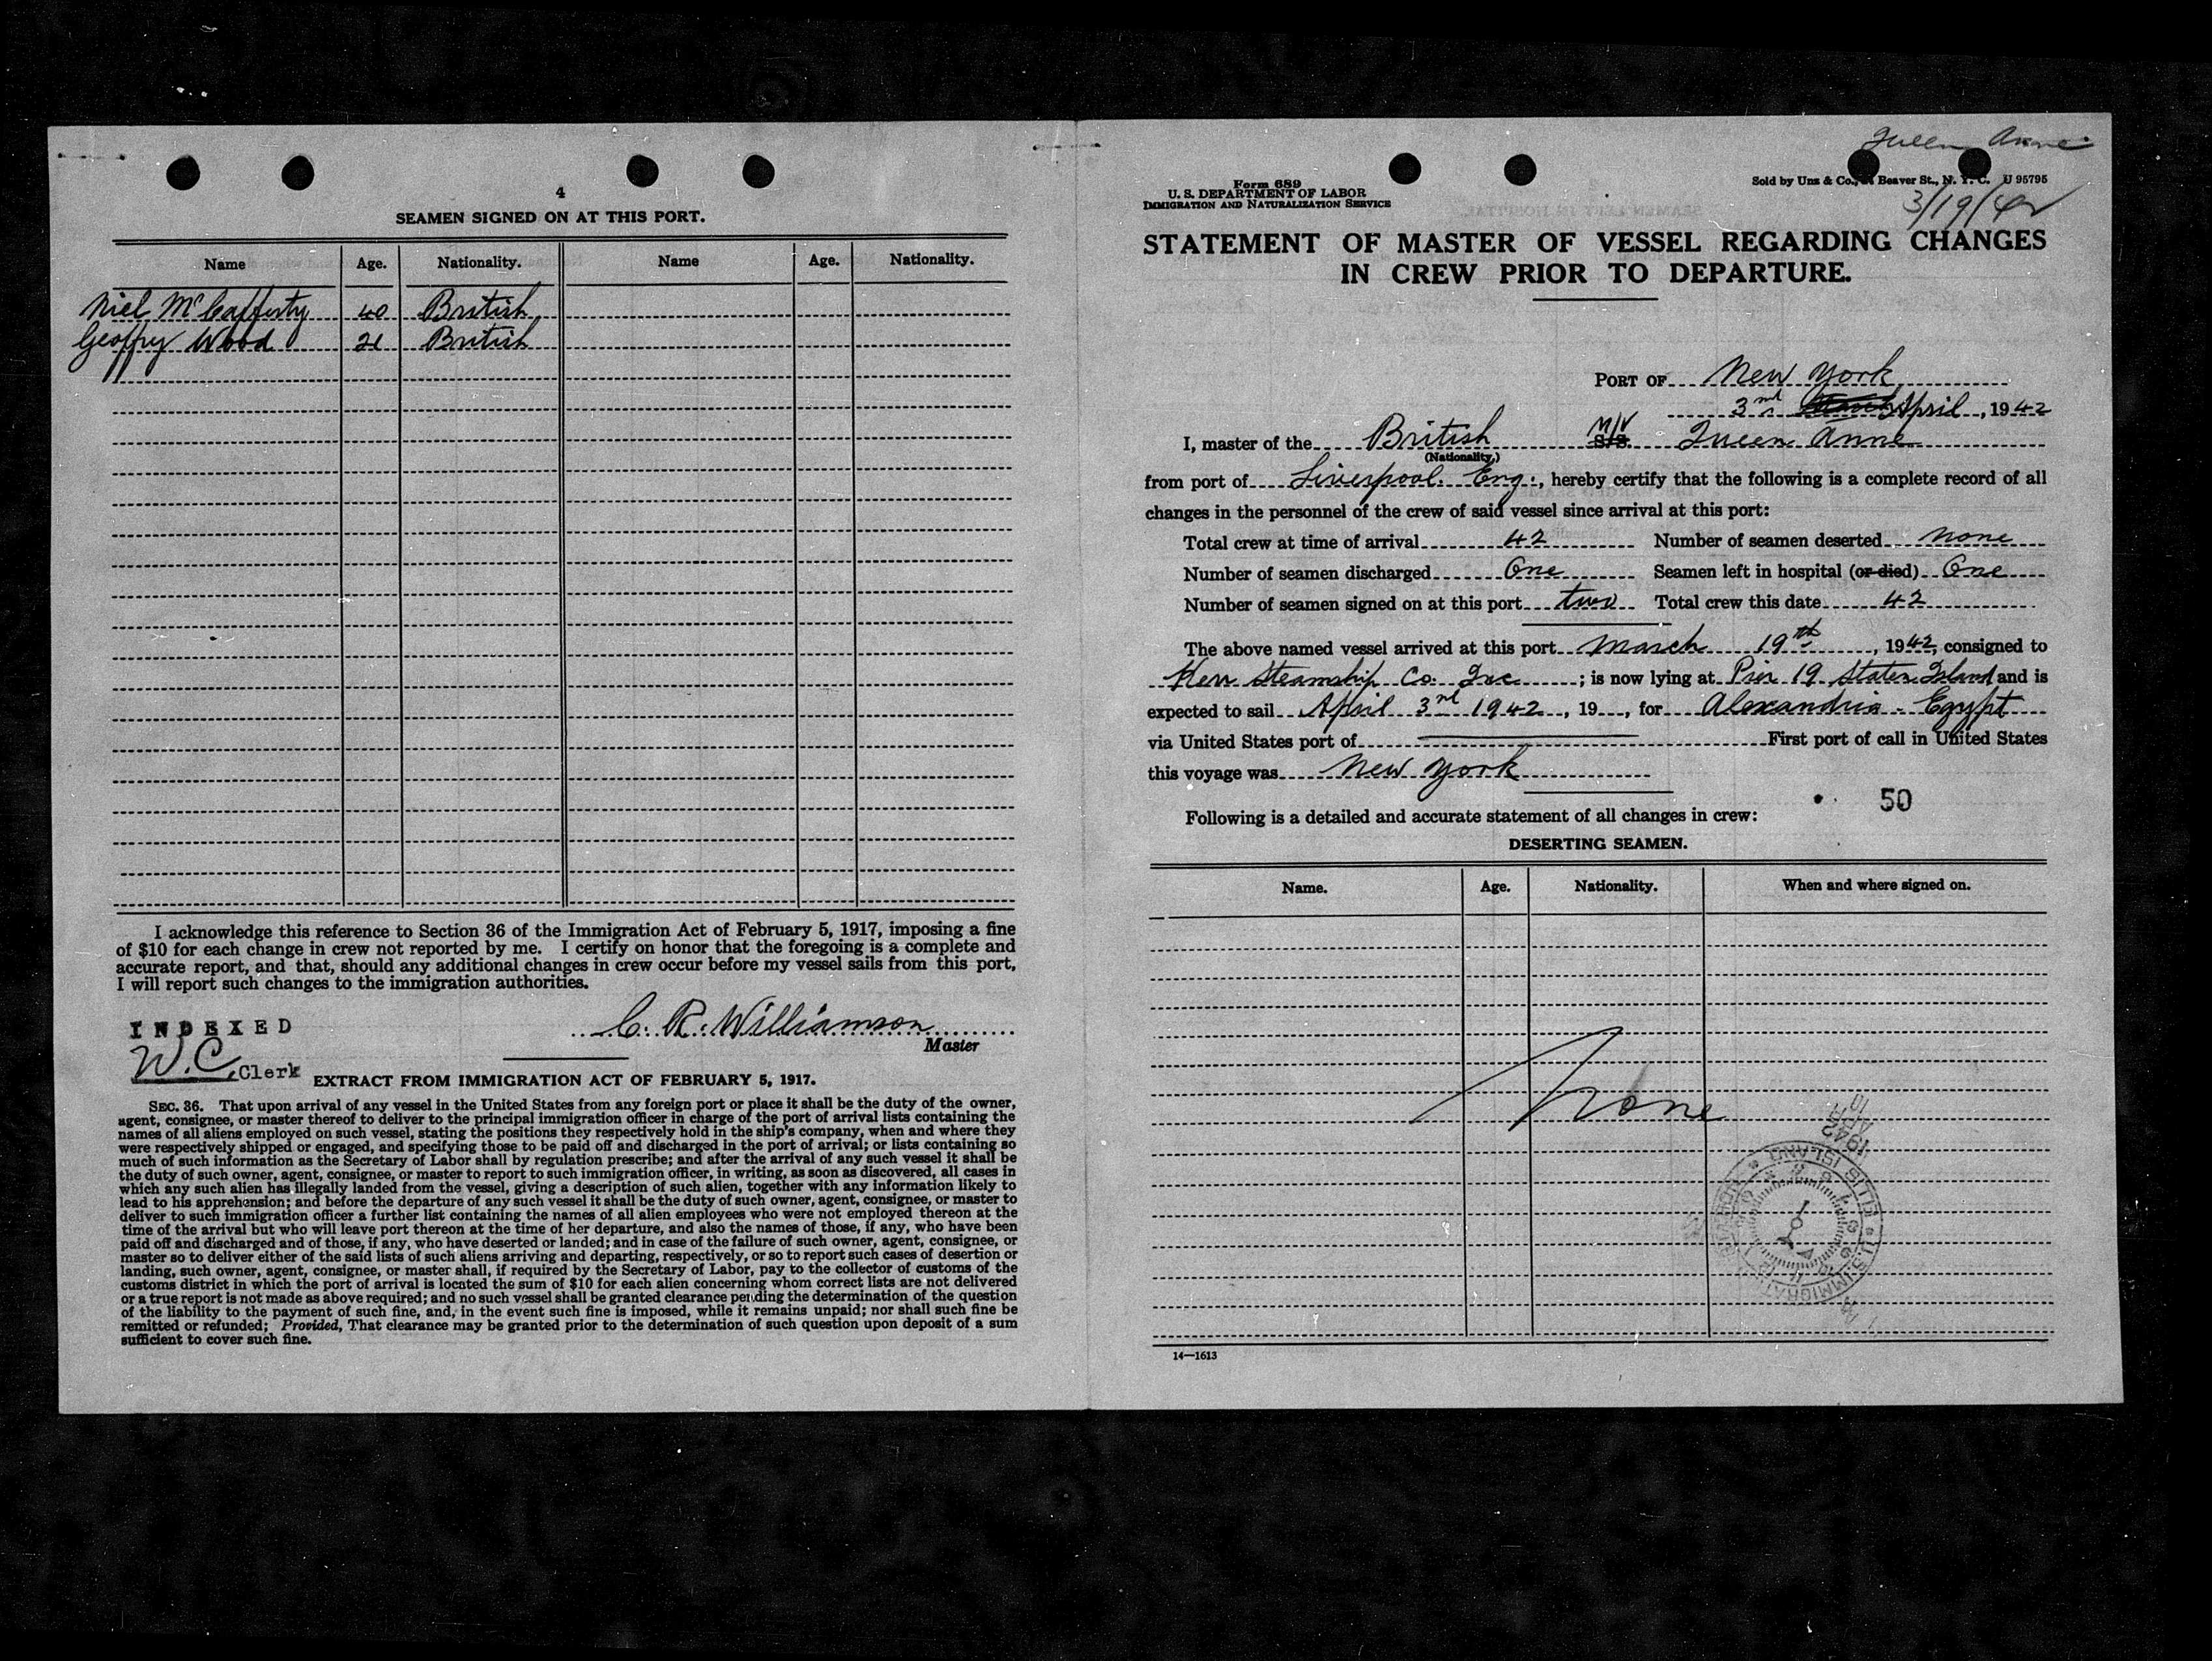 4
SEAMEN SIGNED ON AT THIS PORT.
Name Age. Nationality. Name Age. Nationality.
Niel McCafferty 40 British
Geoffry Wood 21 British
I acknowledge this reference to Section 36 of the Immigration Act of February 5, 1917, imposing a fine
of $10 for each change in crew not reported by me. I certify on honor that the foregoing is a complete and
accurate report, and that, should any additional changes in crew occur before my vessel sails from this port,
I will report such changes to the immigration authorities.
INDEXED
C. R. Williamson
Master
W.C. Clerk
EXTRACT FROM IMMIGRATION ACT OF FEBRUARY 5, 1917.
SEC. 36. That upon arrival of any vessel in the United States from any foreign port or place it shall be the duty of the owner,
agent, consignee, or master thereof to deliver to the principal immigration officer in charge of the port of arrival lists containing the
names of all aliens employed on such vessel, stating the positions they respectively hold in the ship's company, when and where they
were respectively shipped or engaged, and specifying those to be paid off and discharged in the port of arrival; or lists containing so
much of such information as the Secretary of Labor shall by regulation prescribe; and after the arrival of any such vessel it shall be
the duty of such owner, agent, consignee, or master to report to such immigration officer, in writing, as soon as discovered, all cases in
which any such alien has illegally landed from the vessel, giving a description of such alien, together with any information likely to
lead to his apprehension; and before the departure of any such vessel it shall be the duty of such owner, agent, consignee, or master to
deliver to such immigration officer a further list containing the names of all alien employees who were not employed thereon at the
time of the arrival but who will leave port thereon at the time of her departure, and also the names of those, if any, who have been
paid off and discharged and of those, if any, who have deserted or landed; and in case of the failure of such owner, agent, consignee, or
master so to deliver either of the said lists of such aliens arriving and departing, respectively, or so to report such cases of desertion or
landing, such owner, agent, consignee, or master shall, if required by the Secretary of Labor, pay to the collector of customs of the
customs district in which the port of arrival is located the sum of $10 for each alien concerning whom correct lists are not delivered
or a true report is not made as above required; and no such vessel shall be granted clearance pending the determination of the question
of the liability to the payment of such fine, and, in the event such fine is imposed, while it remains unpaid; nor shall such fine be
remitted or refunded; Provided, That clearance may be granted prior to the determination of such question upon deposit of a sum
sufficient to cover such fine.
Queen Anne
Form 689
U. S. DEPARTMENT OF LABOR
IMMIGRATION AND NATURALIZATION SERVICE
Sold by Unz & Co., Beaver St., N. Y. C. U 95795
3/19/42
STATEMENT OF MASTER OF VESSEL REGARDING CHANGES
IN CREW PRIOR TO DEPARTURE.
PORT OF New York
3rd April, 1942
I, master of the British M/V S/S. Queen Anne
(Nationality.)
from port of Liverpool. Eng., hereby certify that the following is a complete record of all
changes in the personnel of the crew of said vessel since arrival at this port:
Total crew at time of arrival 42 Number of seamen deserted none
Number of seamen discharged One Seamen left in hospital (or died) One
Number of seamen signed on at this port two Total crew this date 42
The above named vessel arrived at this port March 19th, 1942, consigned to
Kerr Steamship Co. Inc; is now lying at Pier 19 Staten Island and is
expected to sail April 3rd 1942, 19, for Alexandria - Egypt
via United States port of First port of call in United States
this voyage was New York
50
Following is a detailed and accurate statement of all changes in crew:
DESERTING SEAMEN.
Name. Age. Nationality. When and where signed on.
None
1942
APR
10
ELLIS ISLAND
U.S. IMMIGRATION
14—1613